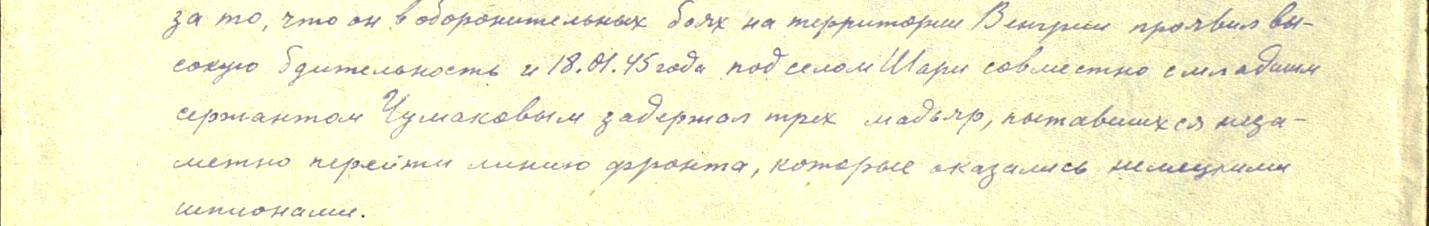 за то, что он в оборонительных боях на территории Венгрии проявил вы-
сокую бдительность и 18.01.45 года под селом Шари совместно с младшим
сержантом Чумаковым задержал трех мадьяр, пытавшихся неза-
метно перейти линию фронта, которые оказались немецкими
шпионами.